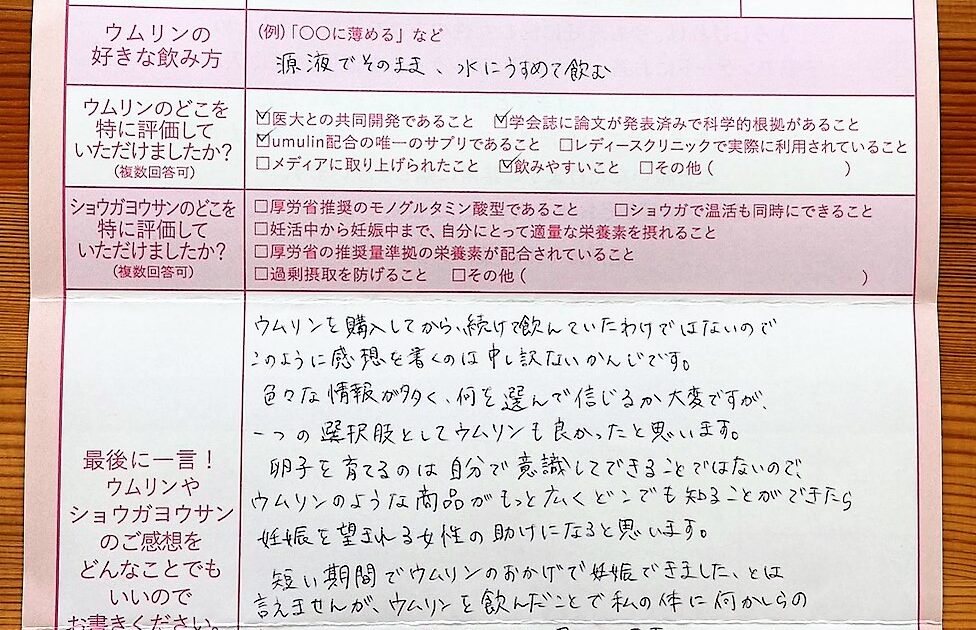 ウムリンの
好きな飲み方
(例)「○○に薄める」など
源液でそのまま、水にうすめて飲む
ウムリンのどこを
特に評価して
いただけましたか?
(複数回答可)
☑医大との共同開発であること ☑学会誌に論文が発表済みで科学的根拠があること
☑umulin配合の唯一のサプリであること □レディースクリニックで実際に利用されていること
□メディアに取り上げられたこと ☑飲みやすいこと □その他( )
ショウガヨウサンのどこを
特に評価して
いただけましたか?
(複数回答可)
□厚労省推奨のモノグルタミン酸型であること □ショウガで温活も同時にできること
□妊活中から妊娠中まで、自分にとって適量な栄養素を摂れること
□厚労省の推奨量準拠の栄養素が配合されていること
□過剰摂取を防げること □その他( )
最後に一言!
ウムリンや
ショウガヨウサン
のご感想を
どんなことでも
いいので
お書きください。
ウムリンを購入してから、続けて飲んでいたわけではないので
このように感想を書くのは申し訳ないかんじです。
色々な情報が多く、何を選んで信じるか大変ですが、
一つの選択肢としてウムリンも良かったと思います。
卵子を育てるのは自分で意識してできることではないので、
ウムリンのような商品がもっと広くどこでも知ることができたら
妊娠を望まれる女性の助けになると思います。
短い期間でウムリンのおかげで妊娠できました、とは
言えませんが、ウムリンを飲んだことで私の体に何かしらの